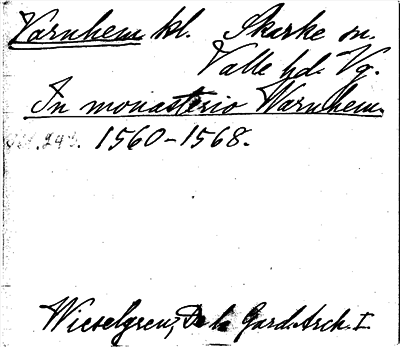 Varnhem kl. Skarke sn.
Valle hd. Vg.
In monasterio Warnhem.
1560-1568.
Wieselgren, De la Gard. Arch. I.